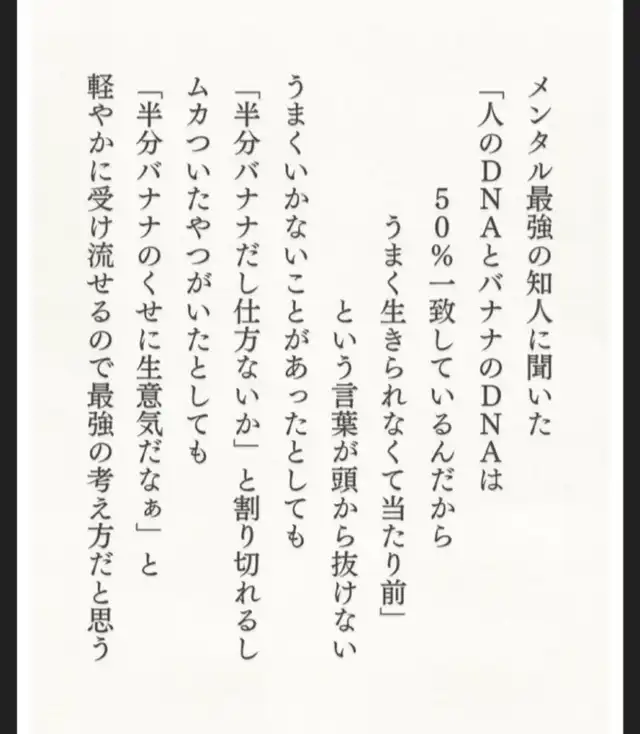 メンタル最強の知人に聞いた
「人のDNAとバナナのDNAは
50%一致しているんだから
うまく生きられなくて当たり前」
という言葉が頭から抜けない
うまくいかないことがあったとしても
「半分バナナだし仕方ないか」と割り切れるし
ムカついたやつがいたとしても
「半分バナナのくせに生意気だなぁ」と
軽やかに受け流せるので最強の考え方だと思う